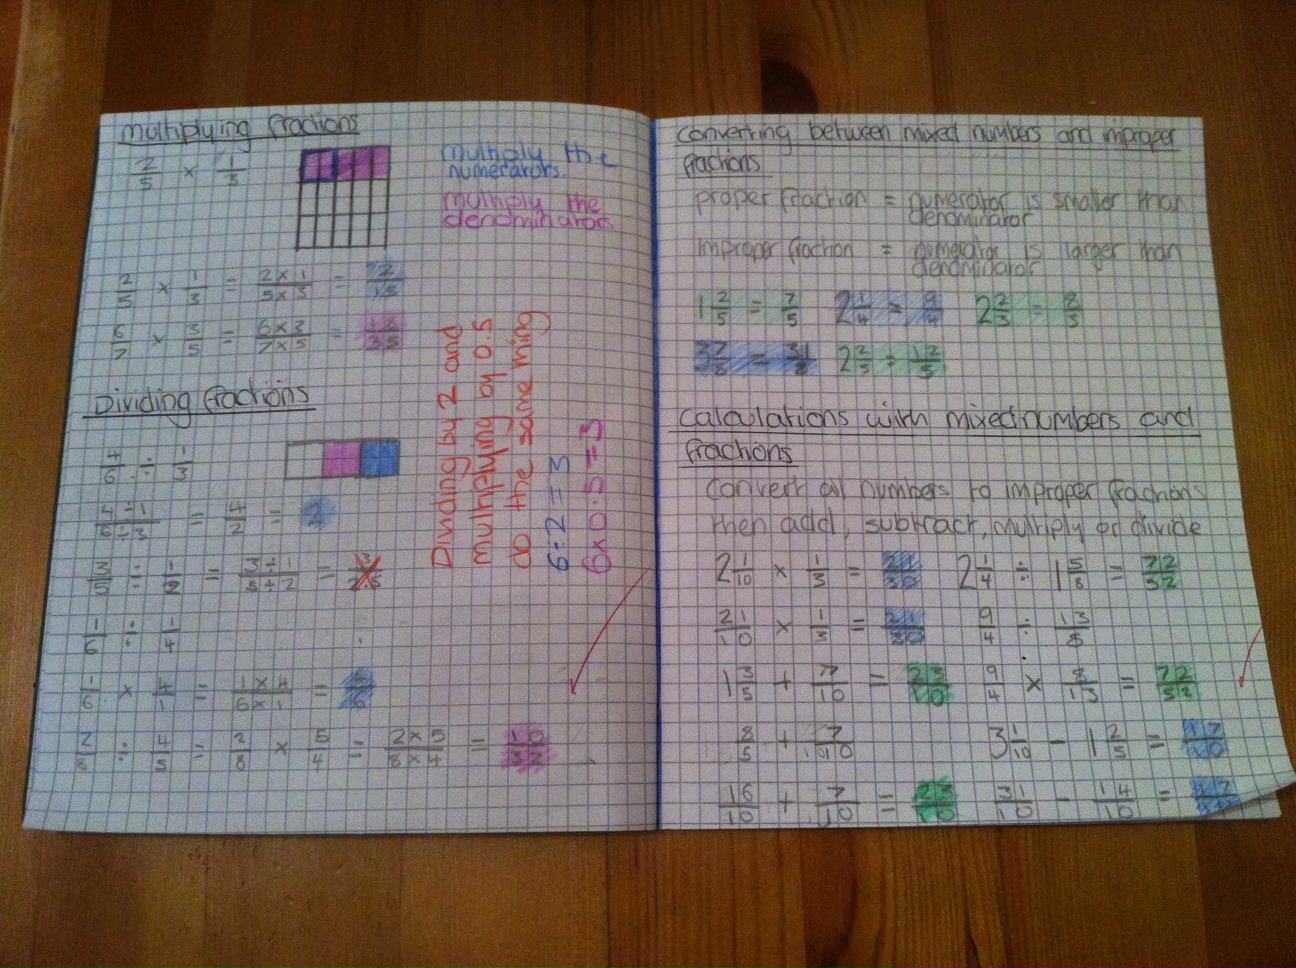 Multiplying fractions
2/5 × 1/3
multiply the
numerators.
multiply the
denominators
2/5 × 1/3 = 2×1/5×3 = 2/15
6/7 × 3/5 = 6×3/7×5 = 18/35
Dividing fractions
4/6 ÷ 1/3
4÷1/6÷3 = 4/2 = 2
3/5 ÷ 1/2 = 3÷1/5÷2 = 3/2.5
1/6 ÷ 1/4
1/6 × 4/1 = 1×4/6×1 = 4/6
÷ 4/5 = 2/8 × 5/4 = 2×5/8×4 = 10/32
Dividing by 2 and
multiplying by 0.5
do the same thing
6÷2=3
6×0.5=3
converting between mixed numbers and improper
fractions
proper fraction = numerator is smaller than
denominator
improper fraction = numerator is larger than
denominator
1 2/5 = 7/5 2 1/4 = 9/4 2 2/3 = 8/3
3 7/8 = 31/8 2 2/5 = 12/5
calculations with mixed numbers and
fractions
convert all numbers to improper fractions
then add, subtract, multiply or divide
2 1/10 × 1/3 = 21/30 2 1/4 ÷ 1 5/8 = 72/52
21/10 × 1/3 = 21/30 9/4 ÷ 13/8
1 3/5 + 7/10 = 23/10 9/4 × 8/13 = 72/52
8/5 + 7/10 3 1/10 - 1 2/5 = 17/10
16/10 + 7/10 = 23/10 31/10 - 14/10 = 17/10